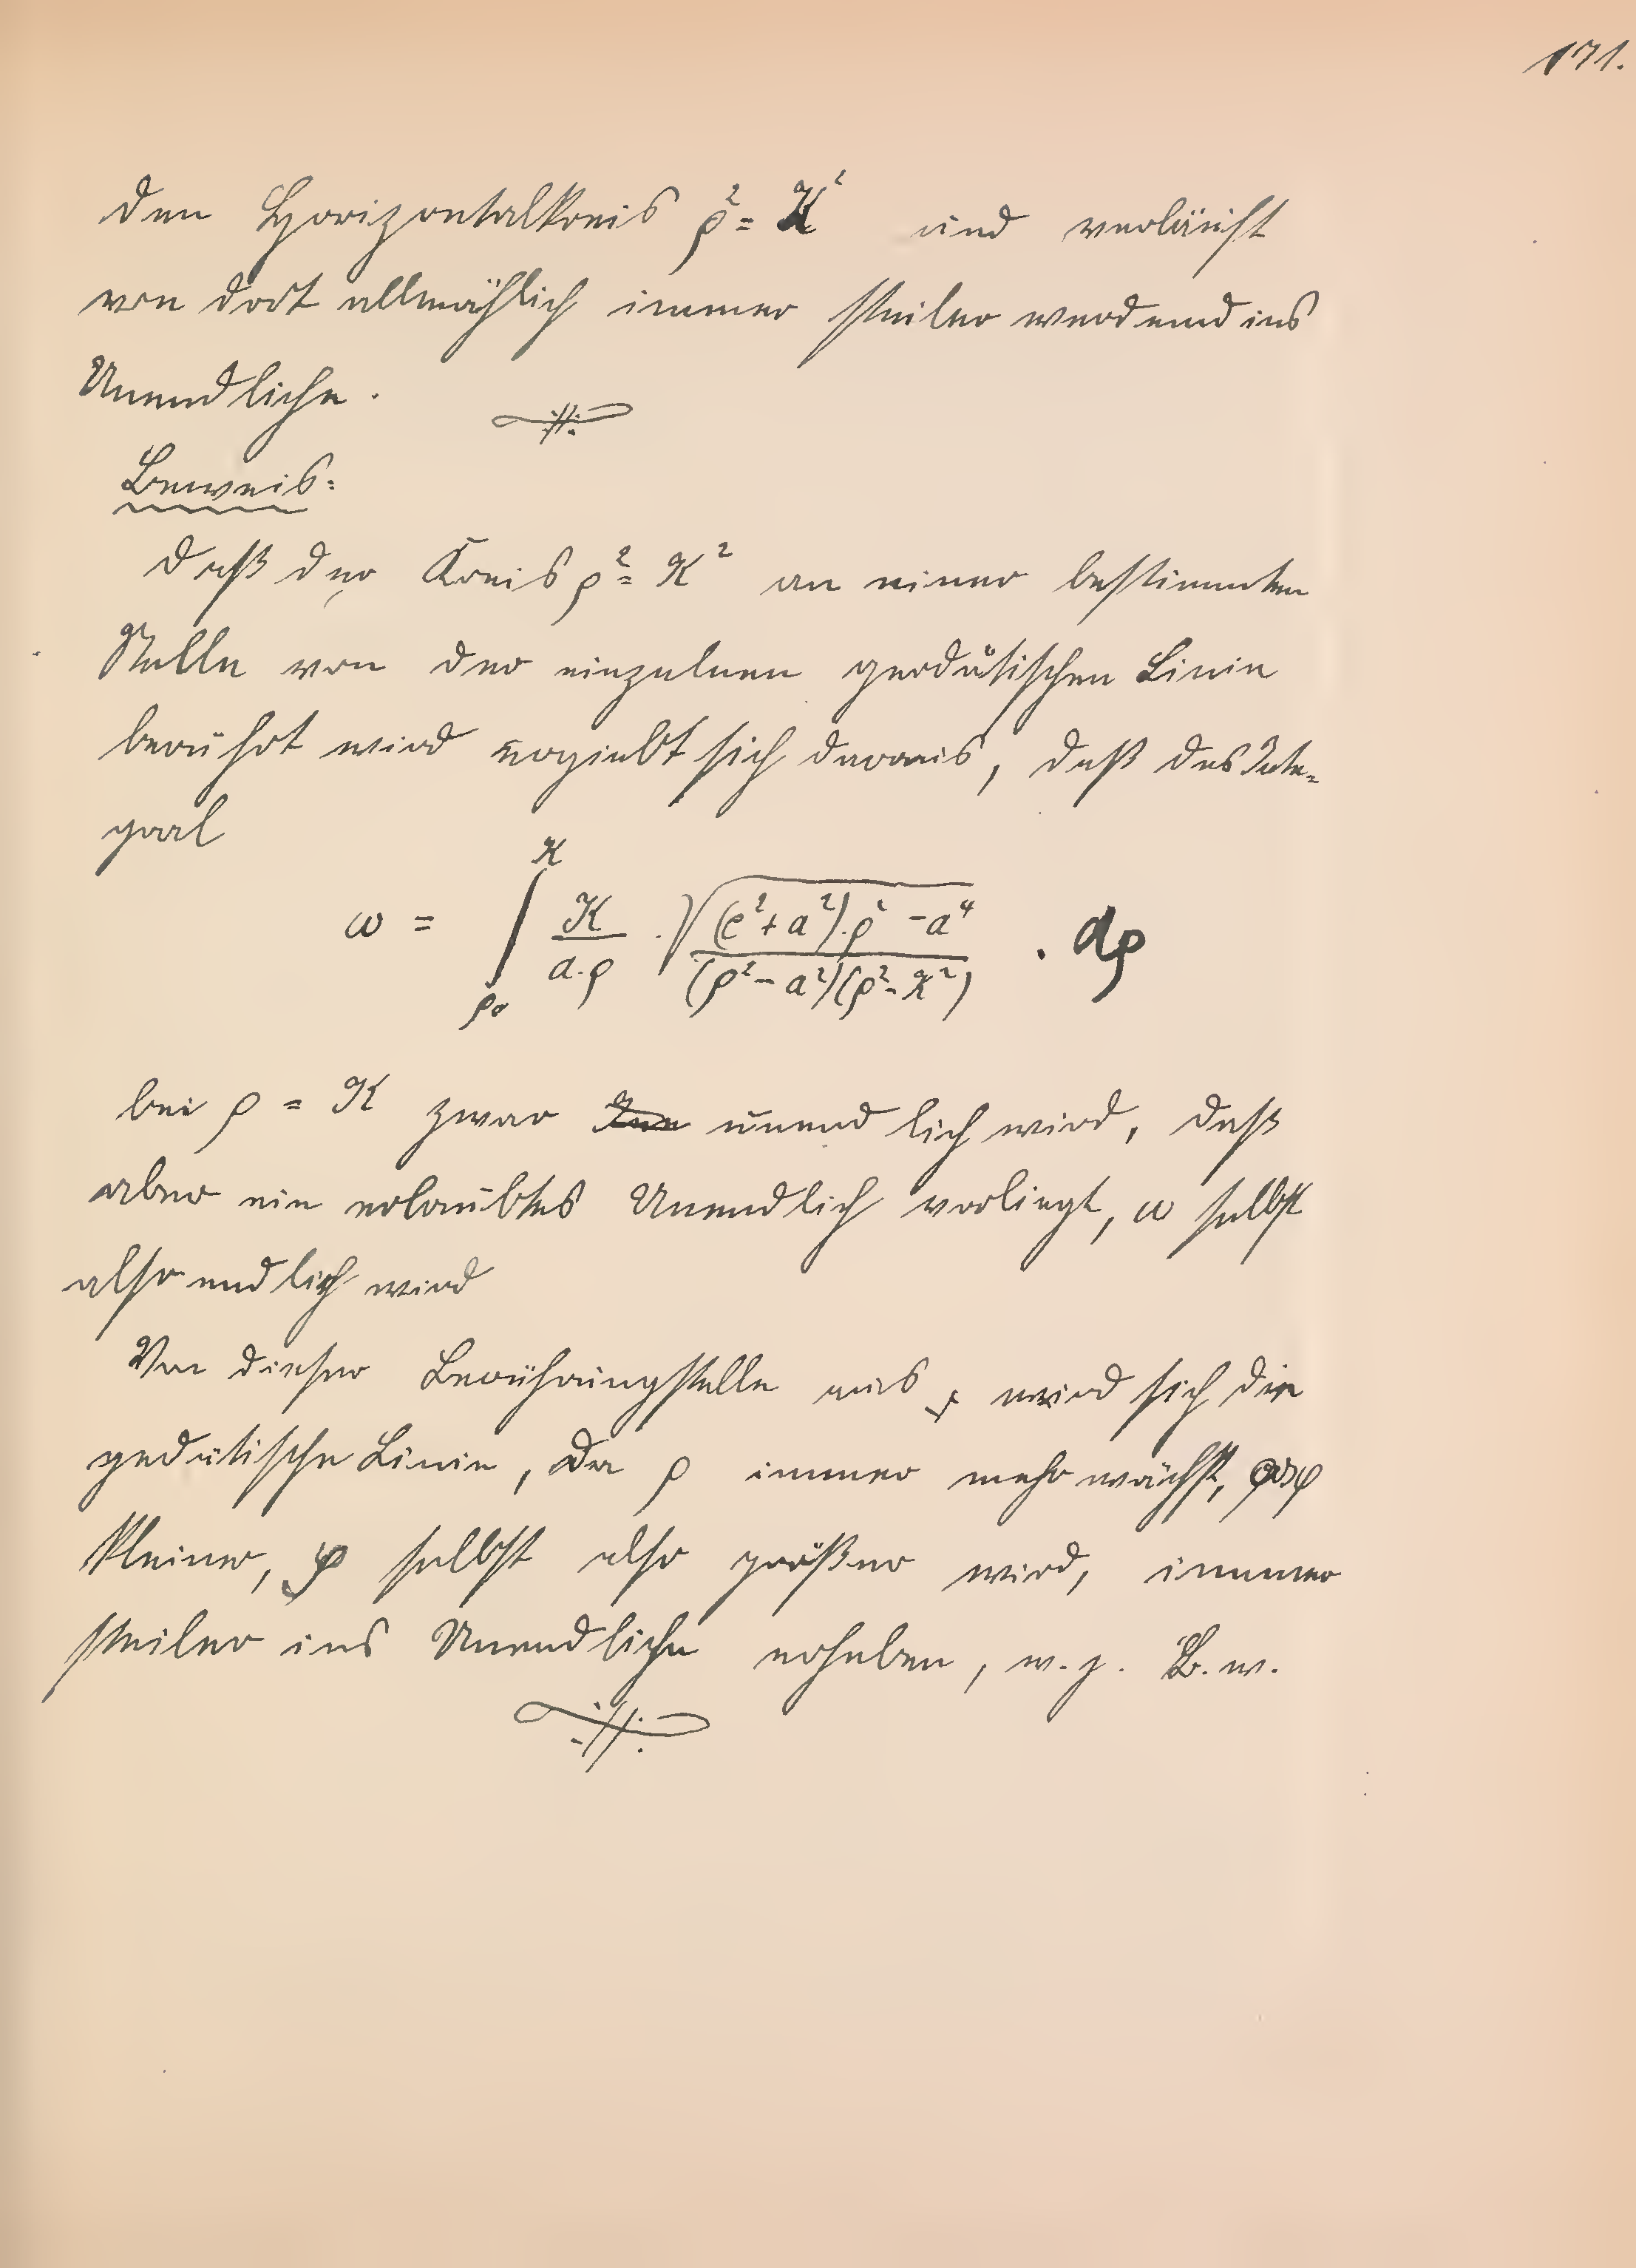 171.
den Horizontalkreis ρ² = K² und verläuft
von dort allmählich immer steiler werdend ins
Unendliche.
Beweis:
Daß der Kreis ρ² = K² an einer bestimmten
Stelle von der einzelnen geodätischen Linie
berührt wird ergiebt sich daraus, daß das Inte-
gral
ω = ∫_{ρ₀}^{K} K/(a·ρ) · √(((c²+a²)·ρ² - a⁴)/((ρ²-a²)(ρ²-K²))) · dρ
bei ρ = K zwar unendlich wird, daß
aber ein erlaubtes Unendlich vorliegt, ω selbst
also endlich wird
Von dieser Berührungstelle aus, wird sich die
gedätische Linie, da ρ immer mehr wächst, cos φ
kleiner, φ selbst also größer wird, immer
steiler ins Unendliche erheben, w. z. B. w.